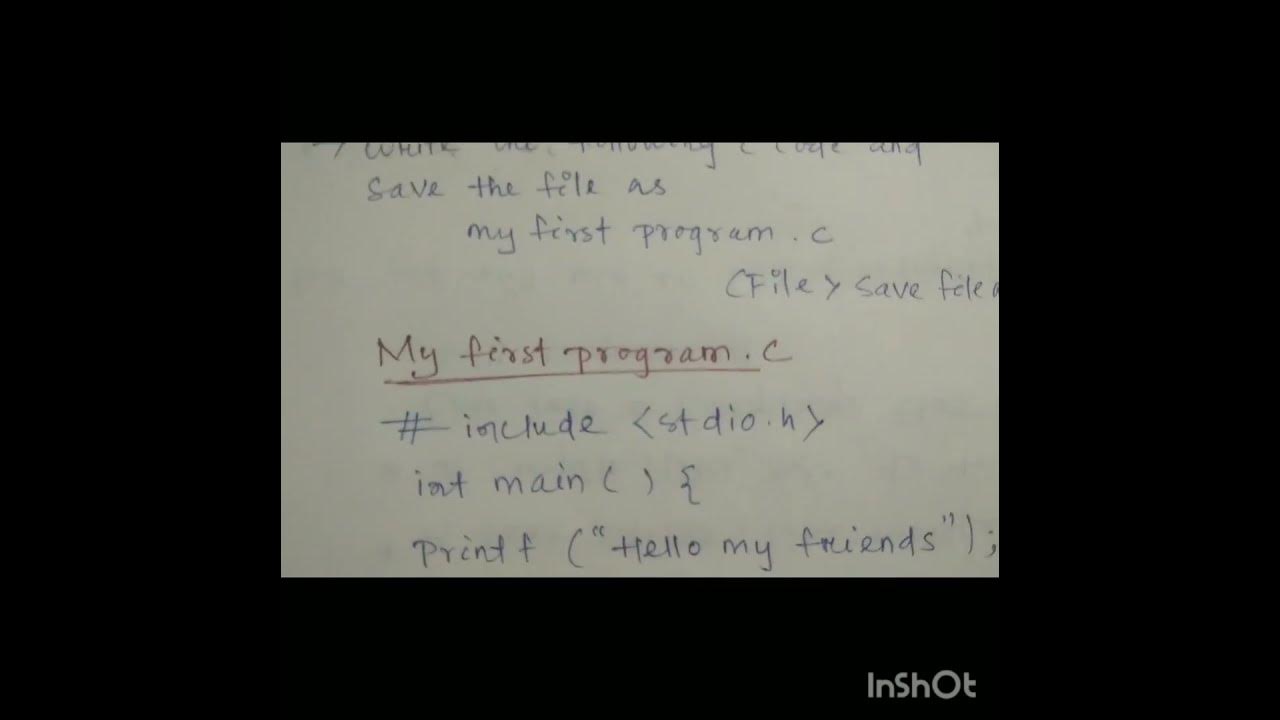 → Write the following C code and
save the file as
my first program . c
(File > save file
My first program . c
# include <stdio.h>
int main ( ) {
printf ("Hello my friends");
InShOt